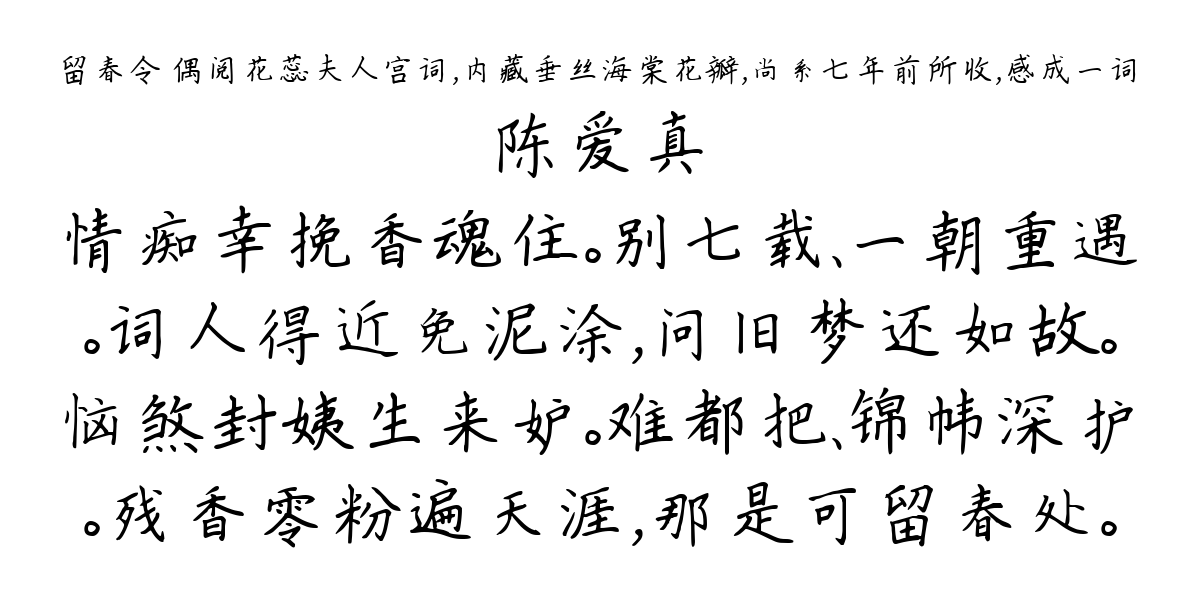 留春令 偶阅花蕊夫人宫词,内藏垂丝海棠花瓣,尚系七年前所收,感成一词
陈爱真
情痴幸挽香魂住。别七载、一朝重遇
。词人得近免泥涂,问旧梦还如故。
恼煞封姨生来妒。难都把、锦帏深护
。残香零粉遍天涯,那是可留春处。